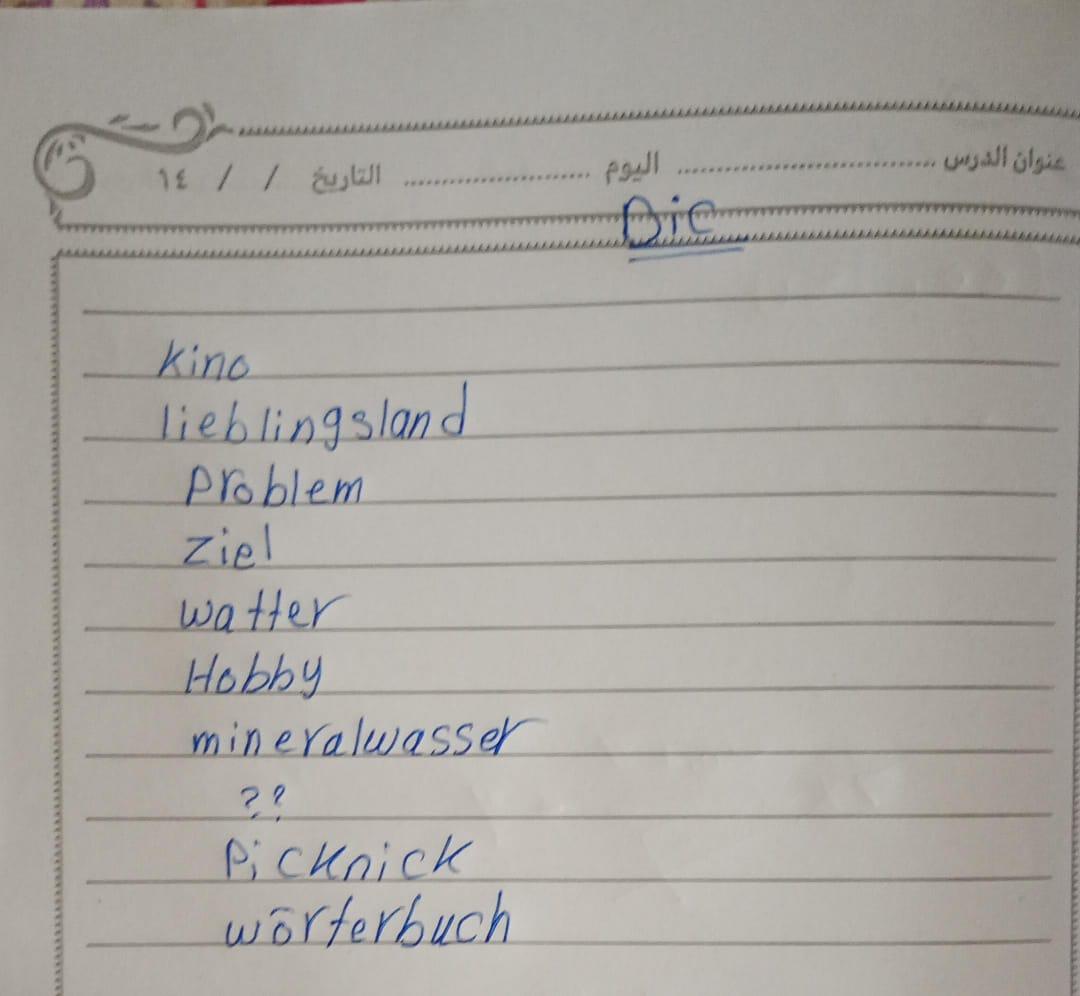 عنوان الدرس ........................ اليوم ........................ التاريخ / / ١٤
Die
kino
lieblingsland
problem
Ziel
watter
Hobby
mineralwasser
??
Picknick
wörterbuch